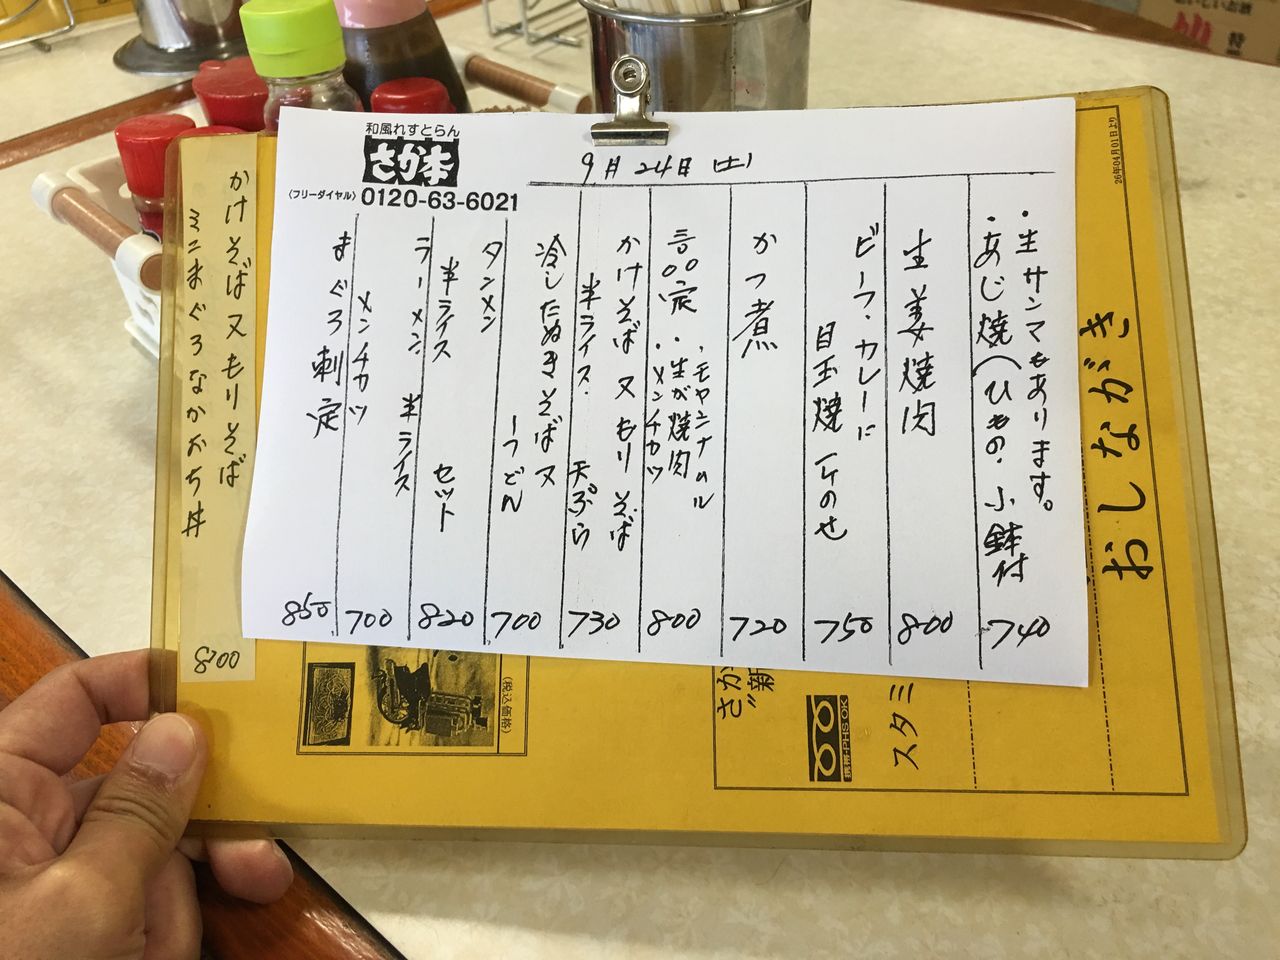 和風れすとらん
さか本
(フリーダイヤル) 0120-63-6021
9月24日(土)
・生サンマもあります。
・あじ焼(ひもの・小鉢付
740
生姜焼肉
800
ビーフ・カレーに
目玉焼1ケのせ
750
かつ煮
720
・生が焼肉
・メンチカツ
800
かけそば又もりそば
半ライス・天ぷら
730
冷したぬきそば又
うどん
700
タンメン
半ライス セット
820
ラーメン 半ライス
メンチカツ
700
まぐろ刺定
850
かけそば又もりそば
ミニまぐろなかおち丼
800
おしながき
26年04月01日より
スタミ
さか
新
携帯・PHS OK
(税込価格)
特